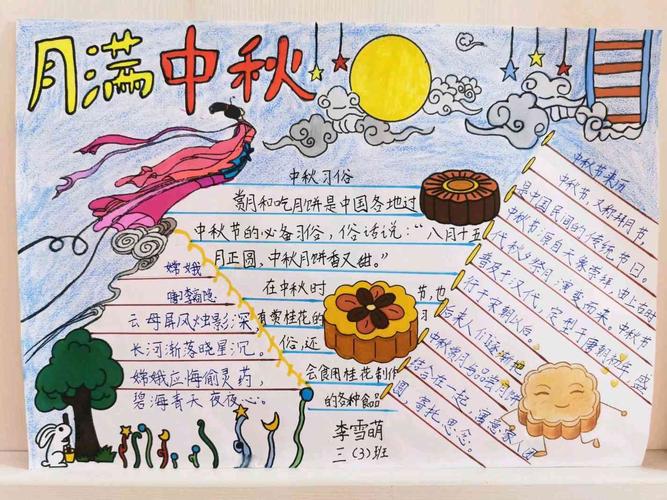 月满中秋
中秋习俗
赏月和吃月饼是中国各地过
中秋节的必备习俗，俗话说：“八月十五
月正圆，中秋月饼香又甜。”
在中秋时节，也
有赏桂花的习
俗，还
会食用桂花制作
的各种食品
李雪萌
三（3）班
嫦娥
唐李商隐
云母屏风烛影深
长河渐落晓星沉。
嫦娥应悔偷灵药，
碧海青天夜夜心。
中秋节来历
中秋节，又称拜月节，
是中国民间的传统节日。
中秋节源自天象崇拜，由上古时
代秋夕祭月演变而来。中秋节
普及于汉代，定型于唐朝初年，盛
行于宋朝以后。
后来人们逐渐把
中秋赏月与品尝月饼
结合在一起，寓意家人团
圆，寄托思念。